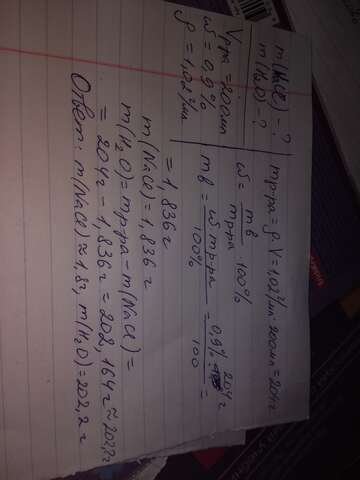 Vр-ра = 200мл
ω = 0,9%
ρ = 1,02г/мл
m(NaCl) - ?
m(H₂O) - ?
mр-ра = ρ·V = 1,02г/мл · 200мл = 204г
ω = mв / mр-ра · 100%
mв = ω mр-ра / 100% = 0,9% · 204г / 100 =
= 1,836г
m(NaCl) = 1,836г
m(H₂O) = mр-ра - m(NaCl) =
= 204г - 1,836г = 202,164г ≈ 202,2г
Ответ: m(NaCl) ≈ 1,8г, m(H₂O) = 202,2г